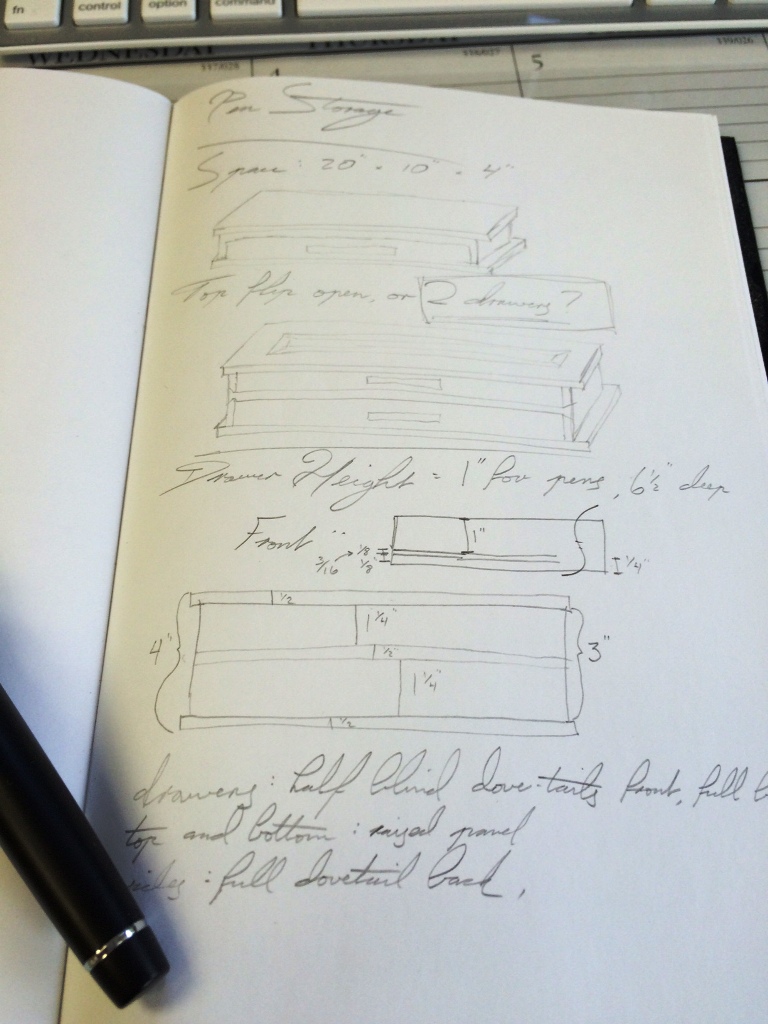 fn control option command
WEDNESDAY THURSDAY
337/028 4 338/027 5 339/026
Pen Storage
Space: 20" × 10" × 4"
Top flip open, or 2 drawers?
Drawer Height = 1" for pens, 6 1/2" deep
Front:
1"
3/16 → 1/8
1/8
1/4"
1/2
4" 1 1/4" 3"
1/2"
1 1/4"
1/2
drawers: half blind dove-tails front, full b
top and bottom: raised panel
sides: full dovetail back.